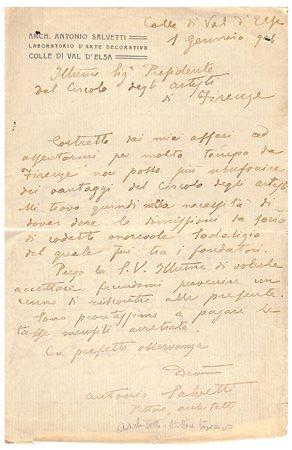 ARCH. ANTONIO SALVETTI
LABORATORIO D'ARTE DECORATIVA
COLLE DI VAL D'ELSA
Colle di Val d'Elsa
1 Gennaio 905
Illmo Sigr Presidente
del Circolo degli artisti
di Firenze
Costretto dai miei affari ad
assentarmi per molto tempo da
Firenze non posso più usufruire
dei vantaggi del Circolo degli artisti
Mi trovo quindi nella necessità di
dover dare le dimissioni da socio
di codesto onorevole Sodalizio
del quale fui tra i fondatori.
Prego la S.V. Illma di volerle
accettare facendomi pervenire un
cenno di riscontro alla presente.
Sono prontissimo a pagare le
tasse mensili arretrate.
Con perfetta osservanza
Devmo
Antonio Salvetti
Pittore, architetto
architetto - pittore toscano